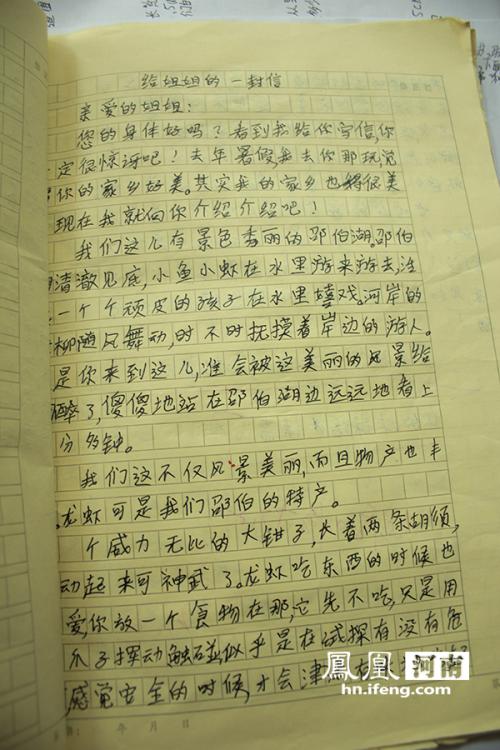 给姐姐的一封信
亲爱的姐姐：
您的身体好吗？看到我给你写信,你
一定很惊讶吧！去年暑假,我去你那玩,觉
你的家乡好美。其实我的家乡也很美
现在我就向你介绍介绍吧！
我们这儿有景色秀丽的邵伯湖。邵伯
清澈见底，小鱼小虾在水里游来游去,
一个个顽皮的孩子在水里嬉戏。河岸的
柳随风舞动,时不时抚摸着岸边的游人。
是你来到这儿,准会被这美丽的风景给
醉了,傻傻地站在邵伯湖边远远地看上
分多钟。
我们这不仅风景美丽,而且物产也丰
龙虾可是我们邵伯的特产。
个威力无比的大钳子,长着两条胡须,
动起来可神武了。龙虾吃东西的时候也
爱,你放一个食物在那,它先不吃,只是用
爪子挥动触碰似乎是在试探有没有危
感觉安全的时候,才会津
年 月 日
凤凰河南
hn.ifeng.com